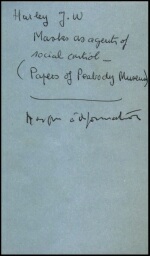 Harley J.W
Masks as agents of
social control –
(Papers of Peabody Museum)
Masque à déformation